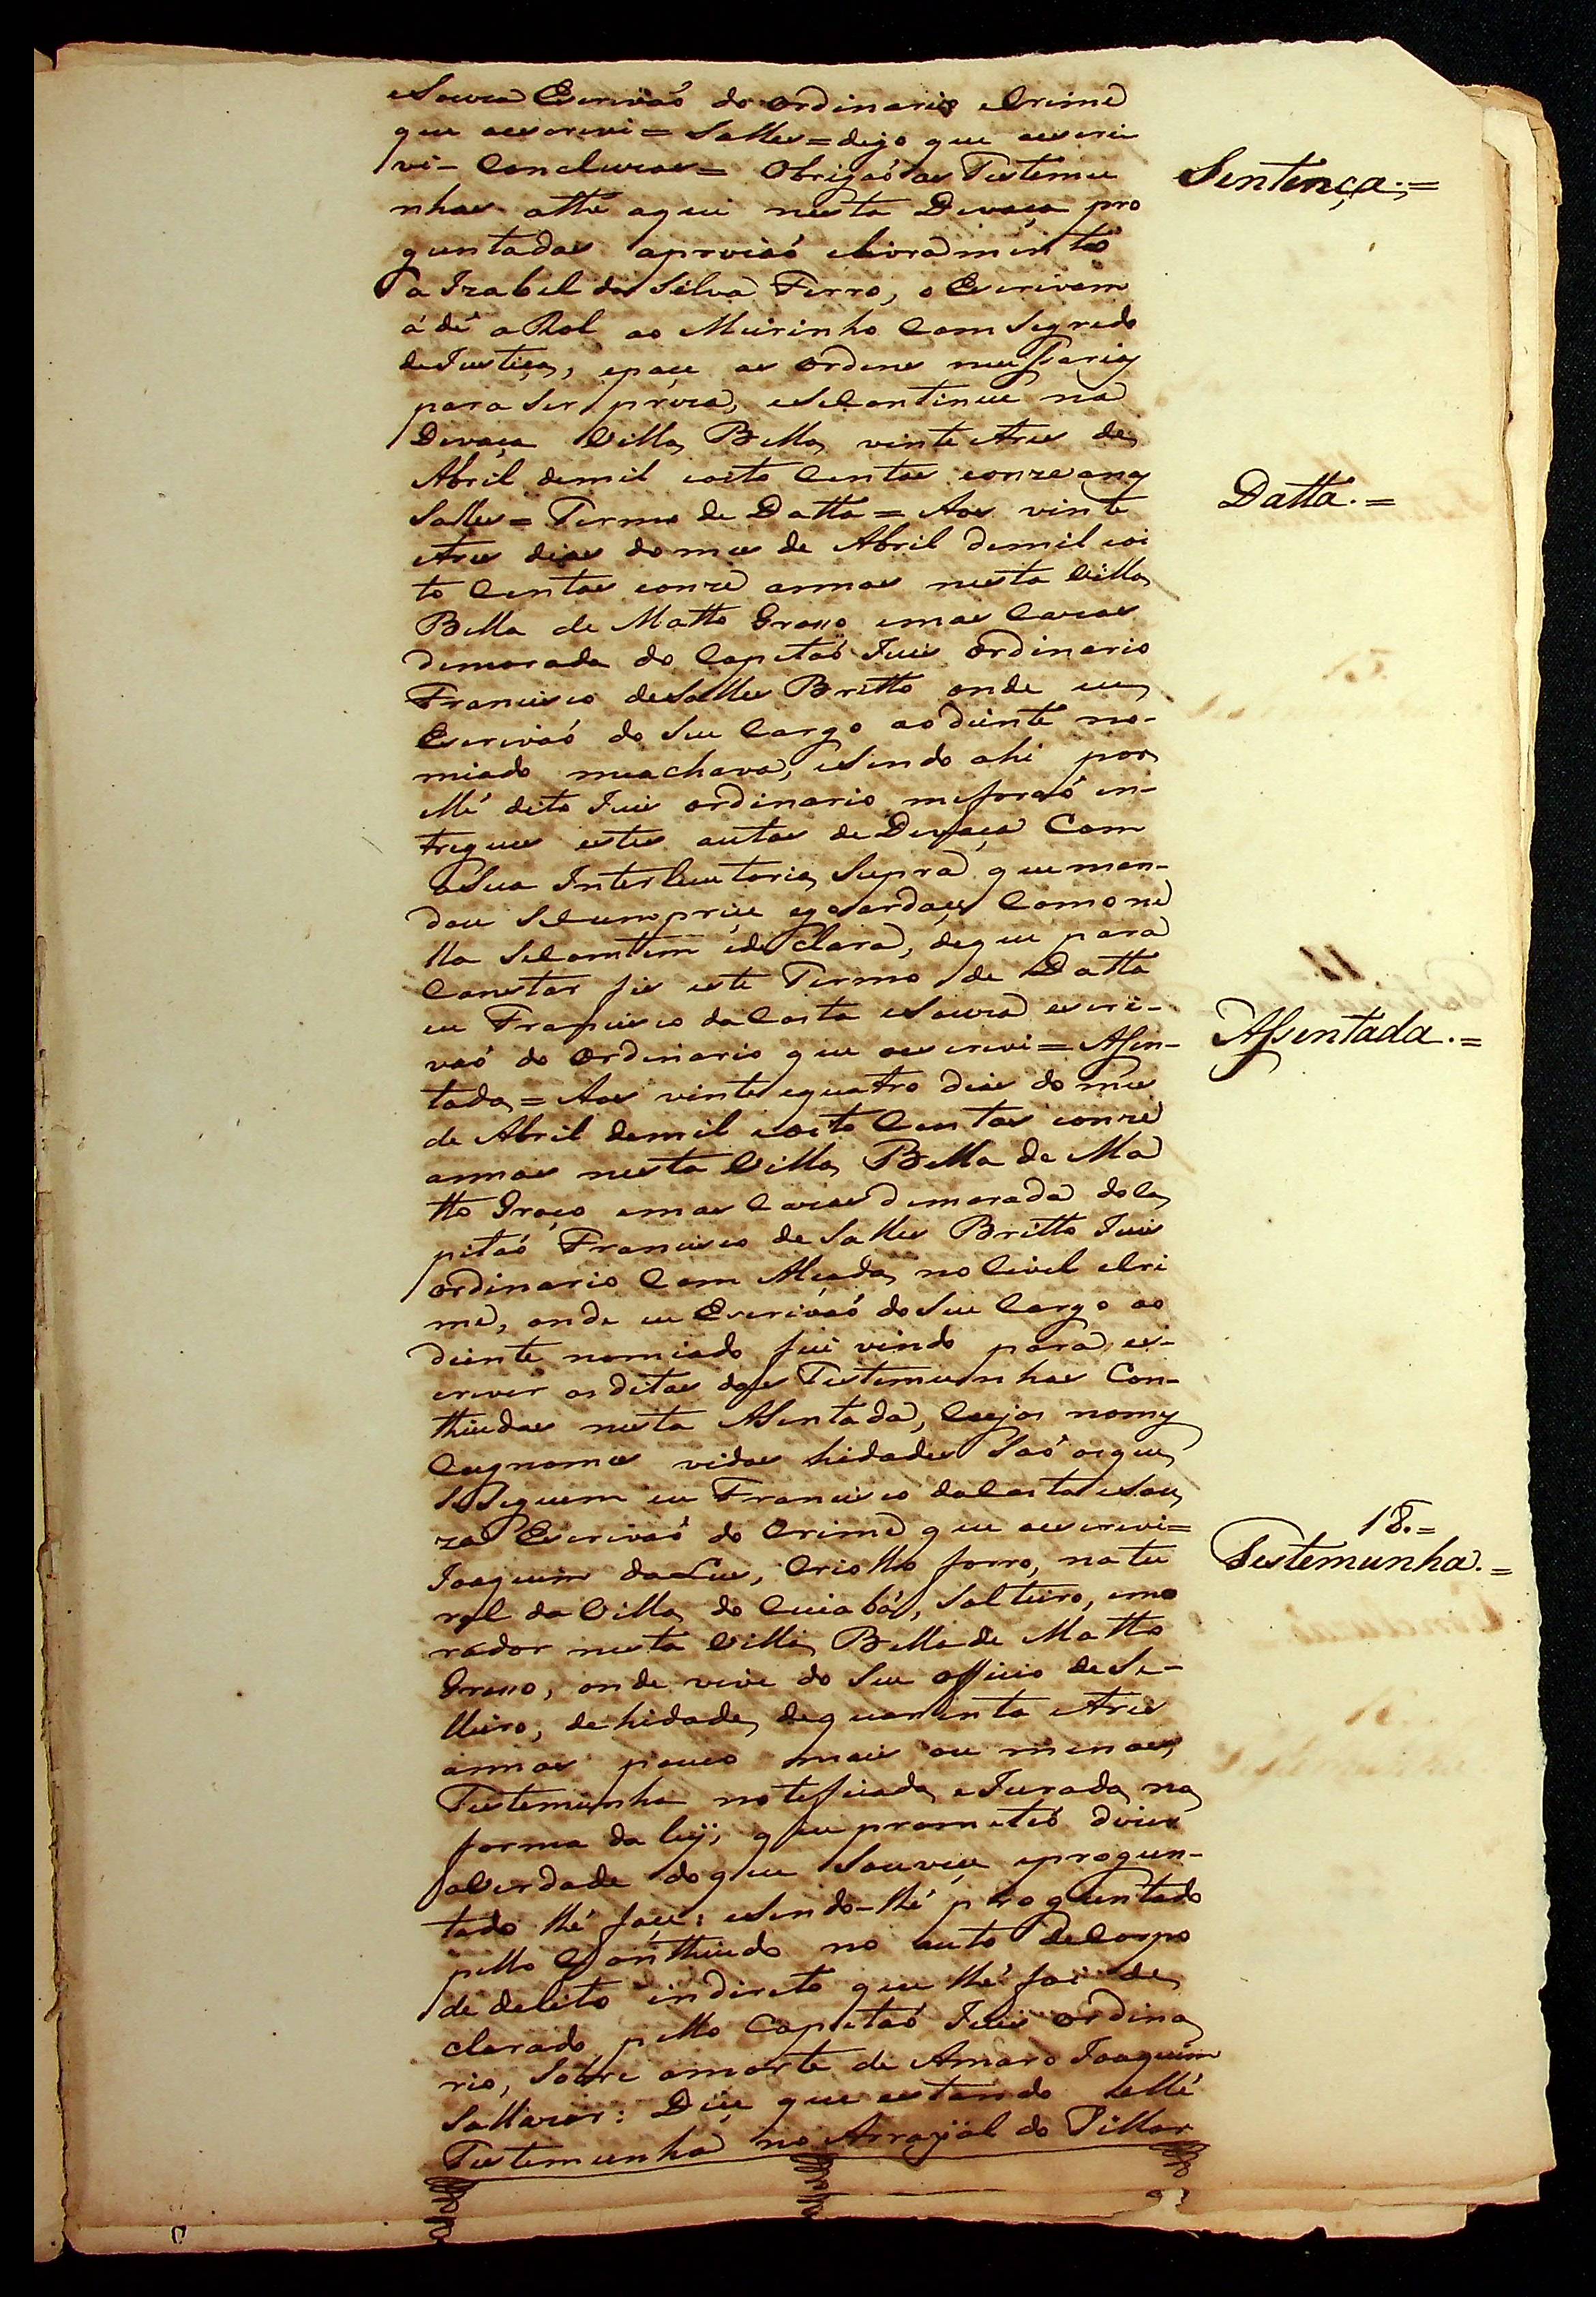 eSouza Escrivaó do ordinario eCrime
que aescrevi = Salles = digo que aescre
vi - Concluzas = Obrigaó as Testemu
Sentença. =
nhas atthé aqui nesta Devaça pro
guntadas aprizaó elivramento
a Izabel da Silva Ferro, o Escrivam
á dê a Rol ao Meirinho Com Segredo
deJustiça, epaçe as ordens neceßarias
para Ser preza, eSeContinue na
Devaça Villa Bella vinte etres de
Abril demil eoito Centos eonze annos
Salles = Termo de Datta = Aos vinte
Datta. =
etres dias do mes de Abril demil eoi
to Centos eonze annos nesta Villa
Bella de Matto Grosso emas Cazas
demorada do Capitaó Juis ordinario
Francisco deSalles Britto onde eu
Escrivaó do Seu Cargo aodiente no-
miado meachava, eSendo ahi por
elle dito Juis ordinario meforaó en-
tregues estes autos de Devaça Com
aSua Interlucutoria Supra que man-
dou Secumpriçe egoardaçe Comone
lla SeContem edeClara, deque para
Constar fis este Termo de Datta
eu Francisco daCosta eSouza escri-
vaó do Ordinario que aescrevi = Assen-
Assentada. =
tada = Aos vinte equatro dias do mes
de Abril demil eoito Centos eonze
annos nesta Villa Bella de Ma
tto Groço emas Cazas demorada doCa
pitaó Francisco de Salles Britto Juis
ordinario Com Alçada no Civel eCri
me, onde eu Escrivaó doSeu Cargo ao
diente nomiado fui vindo para es-
crever os ditos das Testemunhas Con-
thiudas nesta Assentada, Cujos nomes
Cugnomes vidas hidades Saó osque
SeSeguem eu Francisco daCosta eSou
za Escrivaó do Crime que aescrevi =
18. =
Testemunha. =
Joaquim daLuz, Criollo forro, natu
ral da Villa do Cuiabá, Solteiro, emo
rador nesta Villa Bella de Matto
Grosso, onde vive do Seu officio deSe-
lleiro, de hidade dequarenta etres
annos pouco mais ou menos,
Testemunha noteficada eJurada na
forma da ley, que prometeó dizer
averdade doque Souveçe eprogun-
tado lhe foçe: eSendo-lhé proguntado
pello Conthiudo no auto deCorpo
de delito indireto que lhé foi de
clarado pello Capitaó Juis ordina
rio, Sobre amorte de Amaro Joaquim
Sallazar: Diçe que estando elle
Testemunha no Arrayal do Pillar